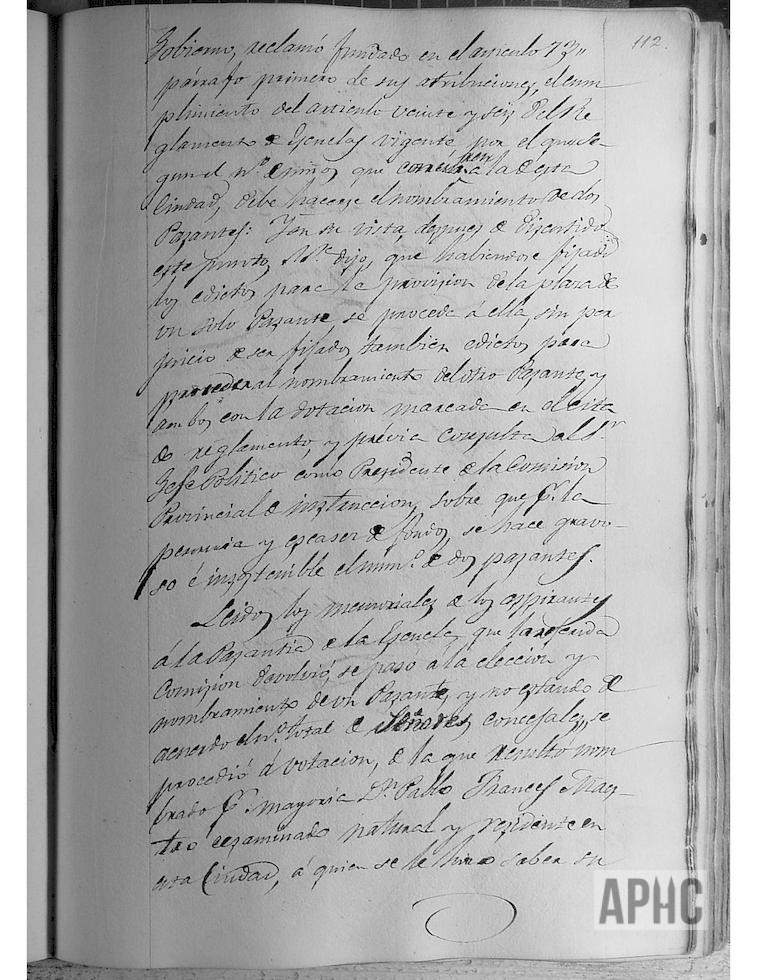 112.
Gobierno, reclamó fundado en el articulo 73,,
párrafo primero de sus atribuciones, el cum
plimiento del articulo veinte y seis del Re
glamento de Escuelas vigente, por el que se-
gun el n.º de niños que a la de esta
Ciudad, debe hacerse el nombramiento de dos
Pasantes: Y en su vista, despues de discutido
este punto, dijo, que habiendose fijado
los edictos para la provision de la plaza de
un solo Pasante, se proceda á ella, sin per
juicio de ser fijados tambien edictos para
proceder al nombramiento del otro Pasante, y
ambos con la dotacion marcada en el cita
do reglamento, y prévia consulta al Sr.
Gefe Politico como Presidente de la Comision
Provincial de instruccion, sobre que pr. la
penuria y escasez de fondos, se hace gravo-
so é insostenible el num.º de dos pasantes.
Leidos los memoriales de los aspirantes
á la Pasantia de la Escuela, que la referida
Comision devolvió, se pasó a la eleccion y
nombramiento de un Pasante, y no estando de
acuerdo el n.º total de Señores concejales, se
procedió á votacion, de la que resultó nom
brado pr. mayoria Dn. Pablo Frances Maes-
tro ecsaminado natural y residente en
esta Ciudad, á quien se le hizo saber su
APHC